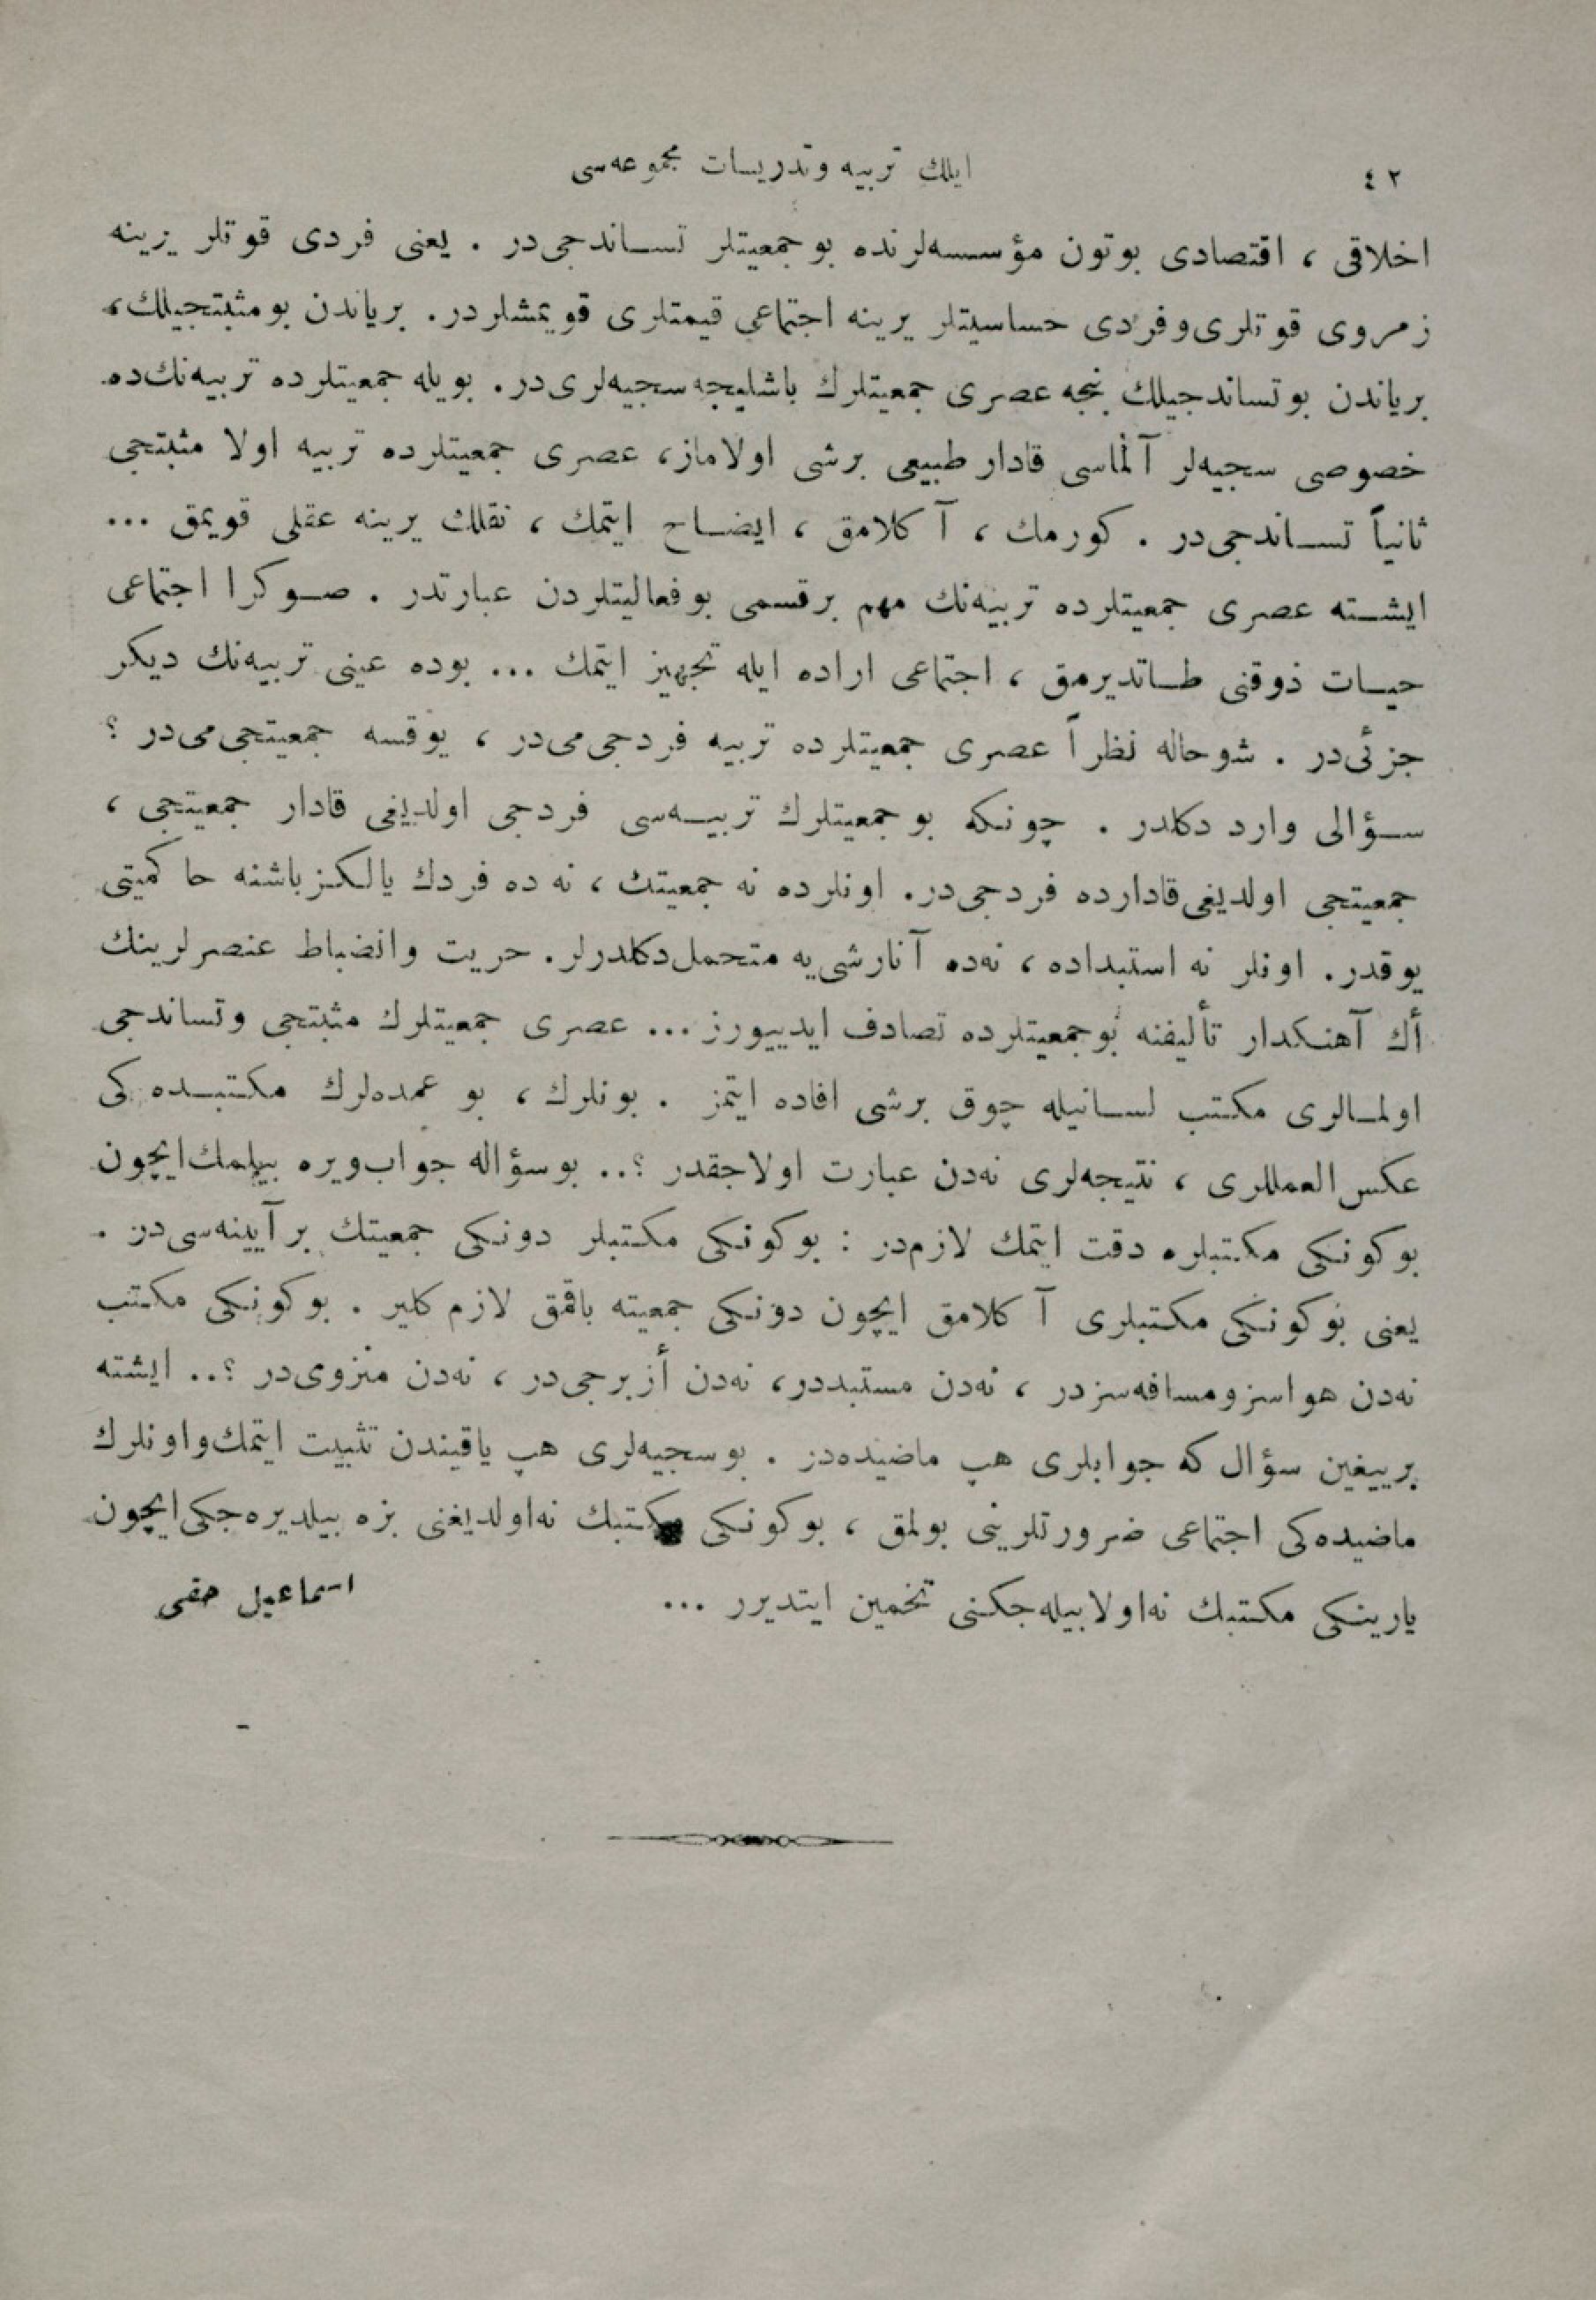 ٤٢
ايلك تربيه وتدريسات مجموعه‌سى
اخلاقى ، اقتصادى بوتون مؤسسه‌لرنده بو جمعيتلر تساندجى‌در . يعنى فردى قوتلر يرينه
زمروى قوتلرى وفردى حساسيتلر يرينه اجتماعى قيمتلرى قويمشلردر. برياندن بومثبتجيلك،
برياندن بوتساندجيلك بنجه عصرى جمعيتلرك باشليجه سجيه‌لرى‌در. بويله جمعيتلرده تربيه‌نك‌ده
خصوصى سجيه‌لر آلماسى قادار طبيعى برشى اولاماز، عصرى جمعيتلرده تربيه اولا مثبتجى
ثانياً تساندجى‌در . كورمك ، آ كلامق ، ايضاح ايتمك ، نقلك يرينه عقلى قويمق ...
ايشته عصرى جمعيتلرده تربيه‌نك مهم برقسمى بوفعاليتلردن عبارتدر . صوكرا اجتماعى
حيات ذوقنى طاتديرمق ، اجتماعى اراده ايله تجهيز ايتمك ... بوده عينى تربيه‌نك ديكر
جزئى‌در . شوحاله نظراً عصرى جمعيتلرده تربيه فردجى‌مى‌در ، يوقسه جمعيتجى‌مى‌در ؟
سؤالى وارد دكلدر . چونكه بو جمعيتلرك تربيه‌سى فردجى اولديغى قادار جمعيتجى ،
جمعيتجى اولديغى قادارده فردجى‌در. اونلرده نه جمعيتك ، نه ده فردك يالكز باشنه حا كميتى
يوقدر. اونلر نه استبداده ، نه‌ده آنارشى‌يه متحمل‌دكلدرلر. حريت وانضباط عنصرلرينك
أك آهنكدار تأليفنه بوجمعيتلرده تصادف ايدييورز ... عصرى جمعيتلرك مثبتجى وتساندجى
اولمالرى مكتب لسانيله چوق برشى افاده ايتمز . بونلرك ، بو عمده‌لرك مكتبده كى
عكس‌العمللرى ، نتيجه‌لرى نه‌دن عبارت اولاجقدر ؟.. بوسؤاله جواب‌ويره بيلمك‌ايچون
بوكونكى مكتبلره دقت ايتمك لازم‌در : بوكونكى مكتبلر دونكى جمعيتك بر آيينه‌سى‌در .
يعنى بوكونكى مكتبلرى آ كلامق ايچون دونكى جمعيته باقمق لازم كلير . بوكونكى مكتب
نه‌دن هواسزومسافه‌سزدر ، نه‌دن مستبددر، نه‌دن أزبرجى‌در ، نه‌دن منزوى‌در ؟.. ايشته
برييغين سؤال كه جوابلرى هپ ماضيده‌در . بوسجيه‌لرى هپ ياقيندن تثبيت ايتمك‌واونلرك
ماضيده‌كى اجتماعى ضرورتلرينى بولمق ، بوكونكى مكتبك نه‌اولديغنى بزه بيلديره‌جكى‌ايچون
يارينكى مكتبك نه‌اولابيله‌جكنى تخمين ايتديرر ...
اسماعيل حقى